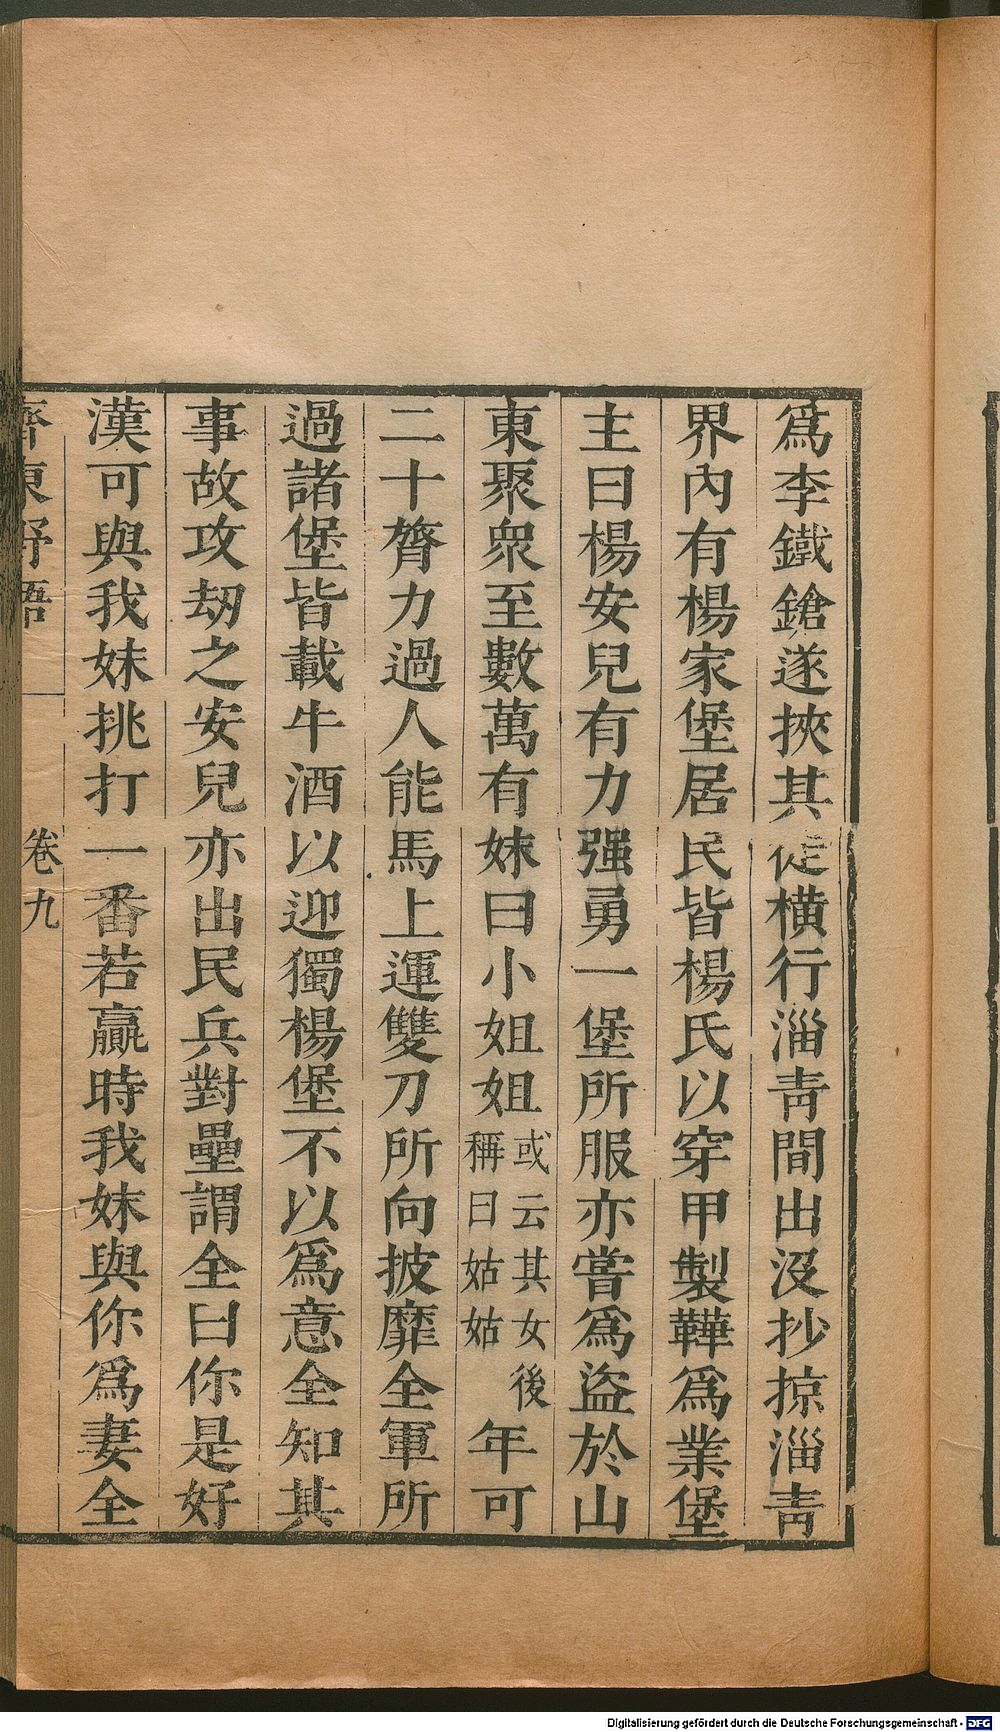 爲李鐵鎗遂挾其從橫行淄靑間出没抄掠淄靑
界內有楊家堡居民皆楊氏以穿甲製鞾爲業堡
主曰楊安兒有力强勇一堡所服亦嘗爲盜於山
東聚衆至數萬有妹曰小姐姐或云其女後稱曰姑姑年可
二十膂力過人能馬上運雙刀所向披靡全軍所
過諸堡皆載牛酒以迎獨楊堡不以爲意全知其
事故攻刼之安兒亦出民兵對壘謂全曰你是好
漢可與我妹挑打一番若贏時我妹與你爲妻全
齊東野語 卷九
Digitalisierung gefördert durch die Deutsche Forschungsgemeinschaft - DFG